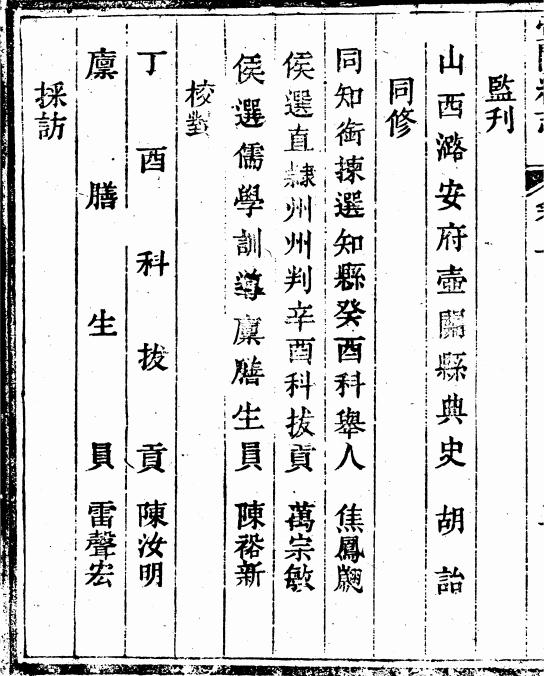 監刊
山西潞安府壺關縣典史 胡詒
同修
同知銜揀選知縣癸酉科舉人 焦鳳
侯選直隸州州判辛酉科拔貢 萬宗敏
侯選儒學訓導廩膳生員 陳裕新
校對
丁酉科拔貢 陳汝明
廩膳生員 雷聲宏
採訪